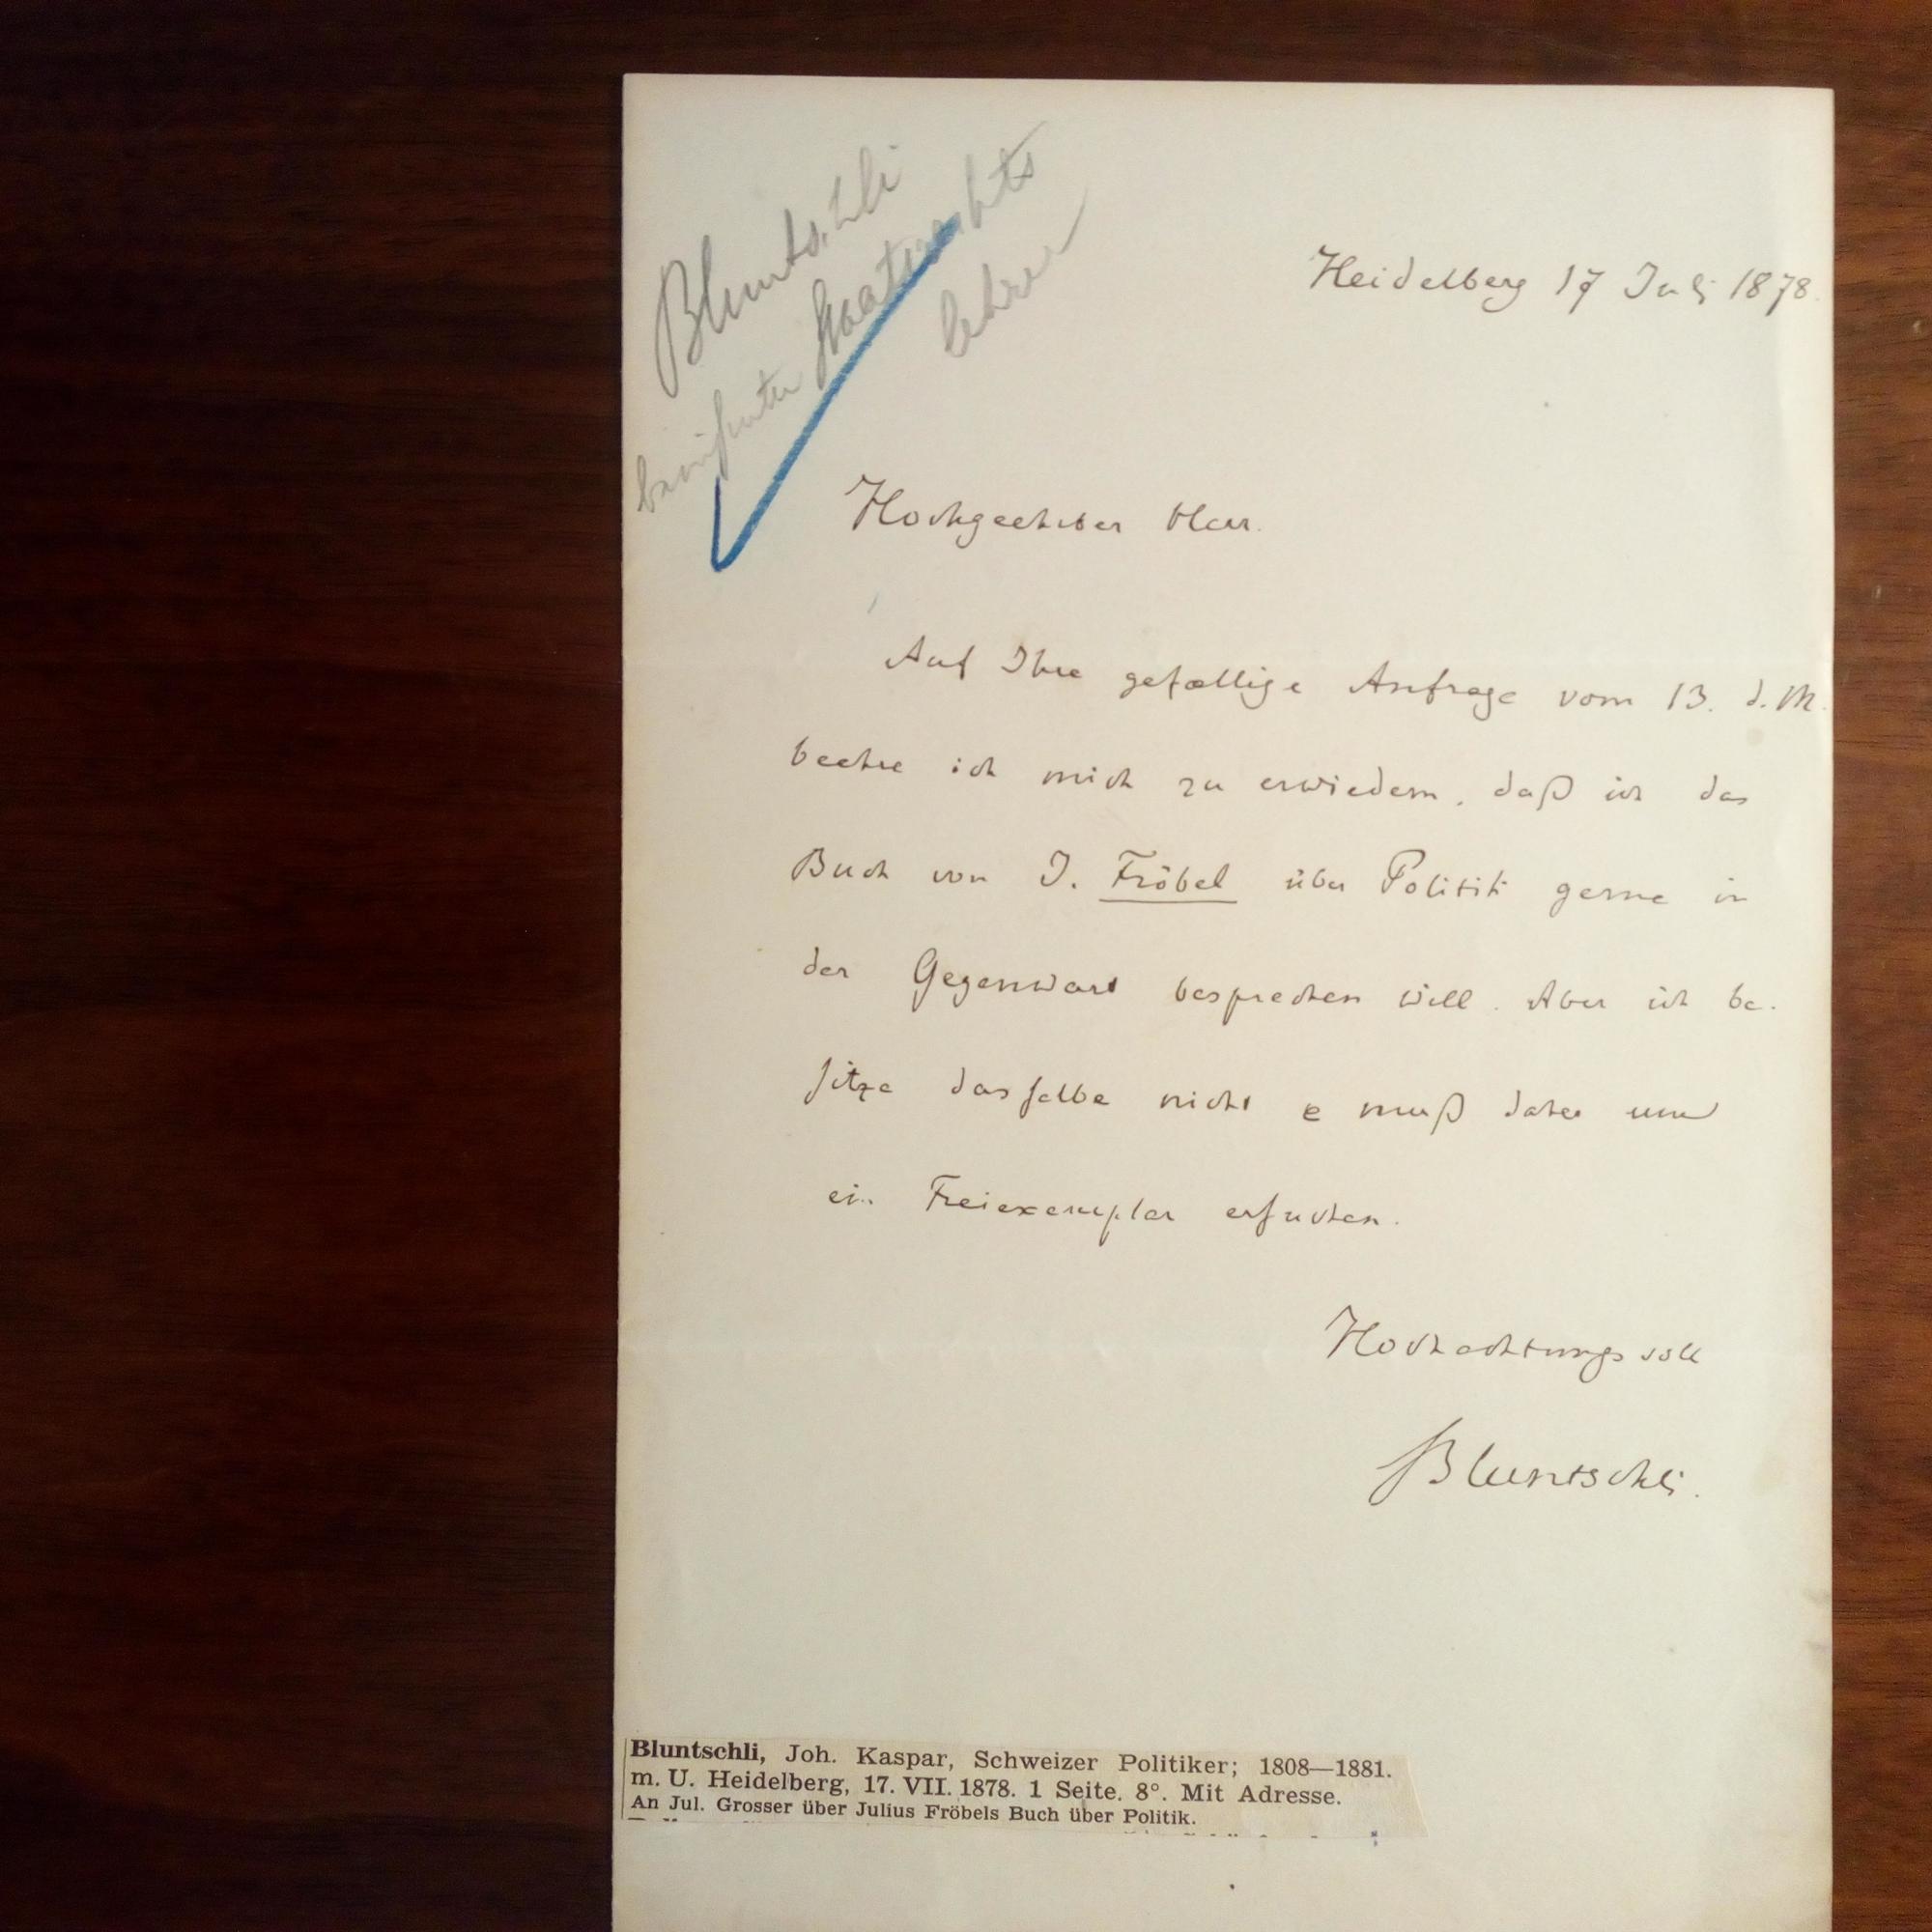 Bluntschli
berühmter Staatsrechts
lehrer
Heidelberg 17 Juli 1878.
Hochgeehrter Herr.
Auf Ihre gefællige Anfrage vom 13. d. M.
beehre ich mich zu erwiedern, daß ich das
Buch von J. Fröbel über Politik gerne in
der Gegenwart besprechen will. Aber ich be-
sitze dasselbe nicht & muß daher um
ein Freiexemplar ersuchen.
Hochachtungsvoll
Bluntschli.
Bluntschli, Joh. Kaspar, Schweizer Politiker; 1808—1881.
m. U. Heidelberg, 17. VII. 1878. 1 Seite. 8°. Mit Adresse.
An Jul. Grosser über Julius Fröbels Buch über Politik.